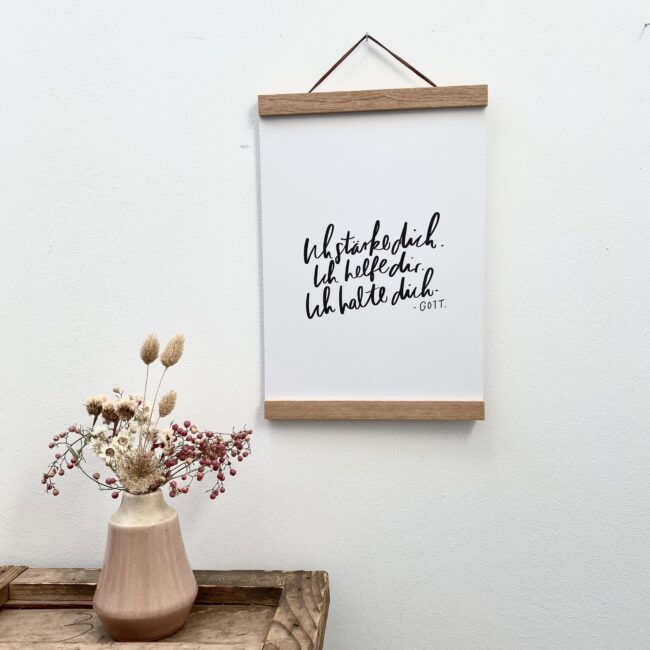 Ich stärke dich.
Ich helfe dir.
Ich halte dich.
- GOTT.